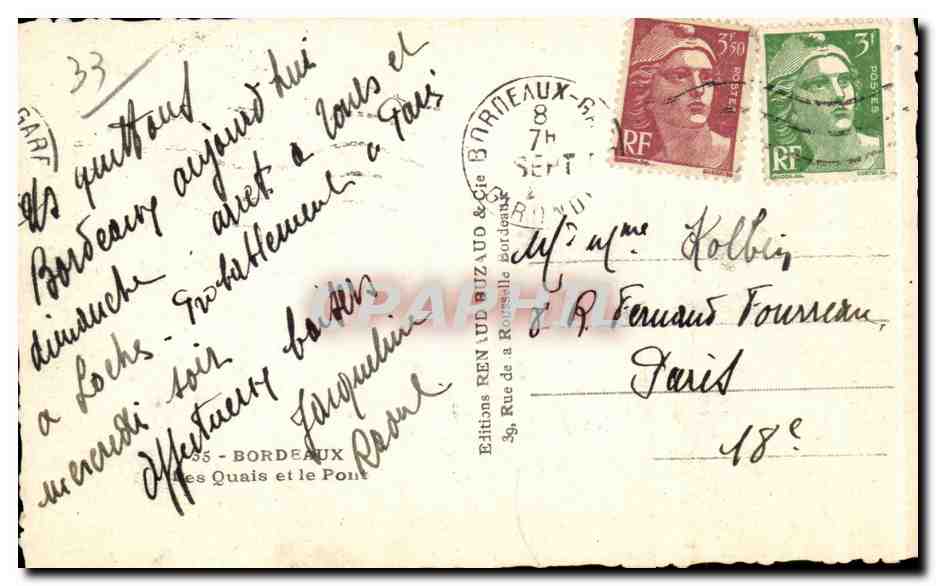 33
quittons
Bordeaux aujourd'hui
dimanche arret a Tours et
a Loches. Probablement a Paris
mercredi soir
affectueux baisers
Jacqueline
Raoul
35 - BORDEAUX
Les Quais et le Pont
Editions RENAUD BUZAUD & Cie
39, Rue de a Rousselle Bordeaux
GARE
BORDEAUX-G
8
7H
SEPT
GIRONDE
3F,50
POSTES
RF
3F
POSTES
RF
Mr Mme Kolbin
8 R. Fernand Fourreau,
Paris
18e
CPARPHIL